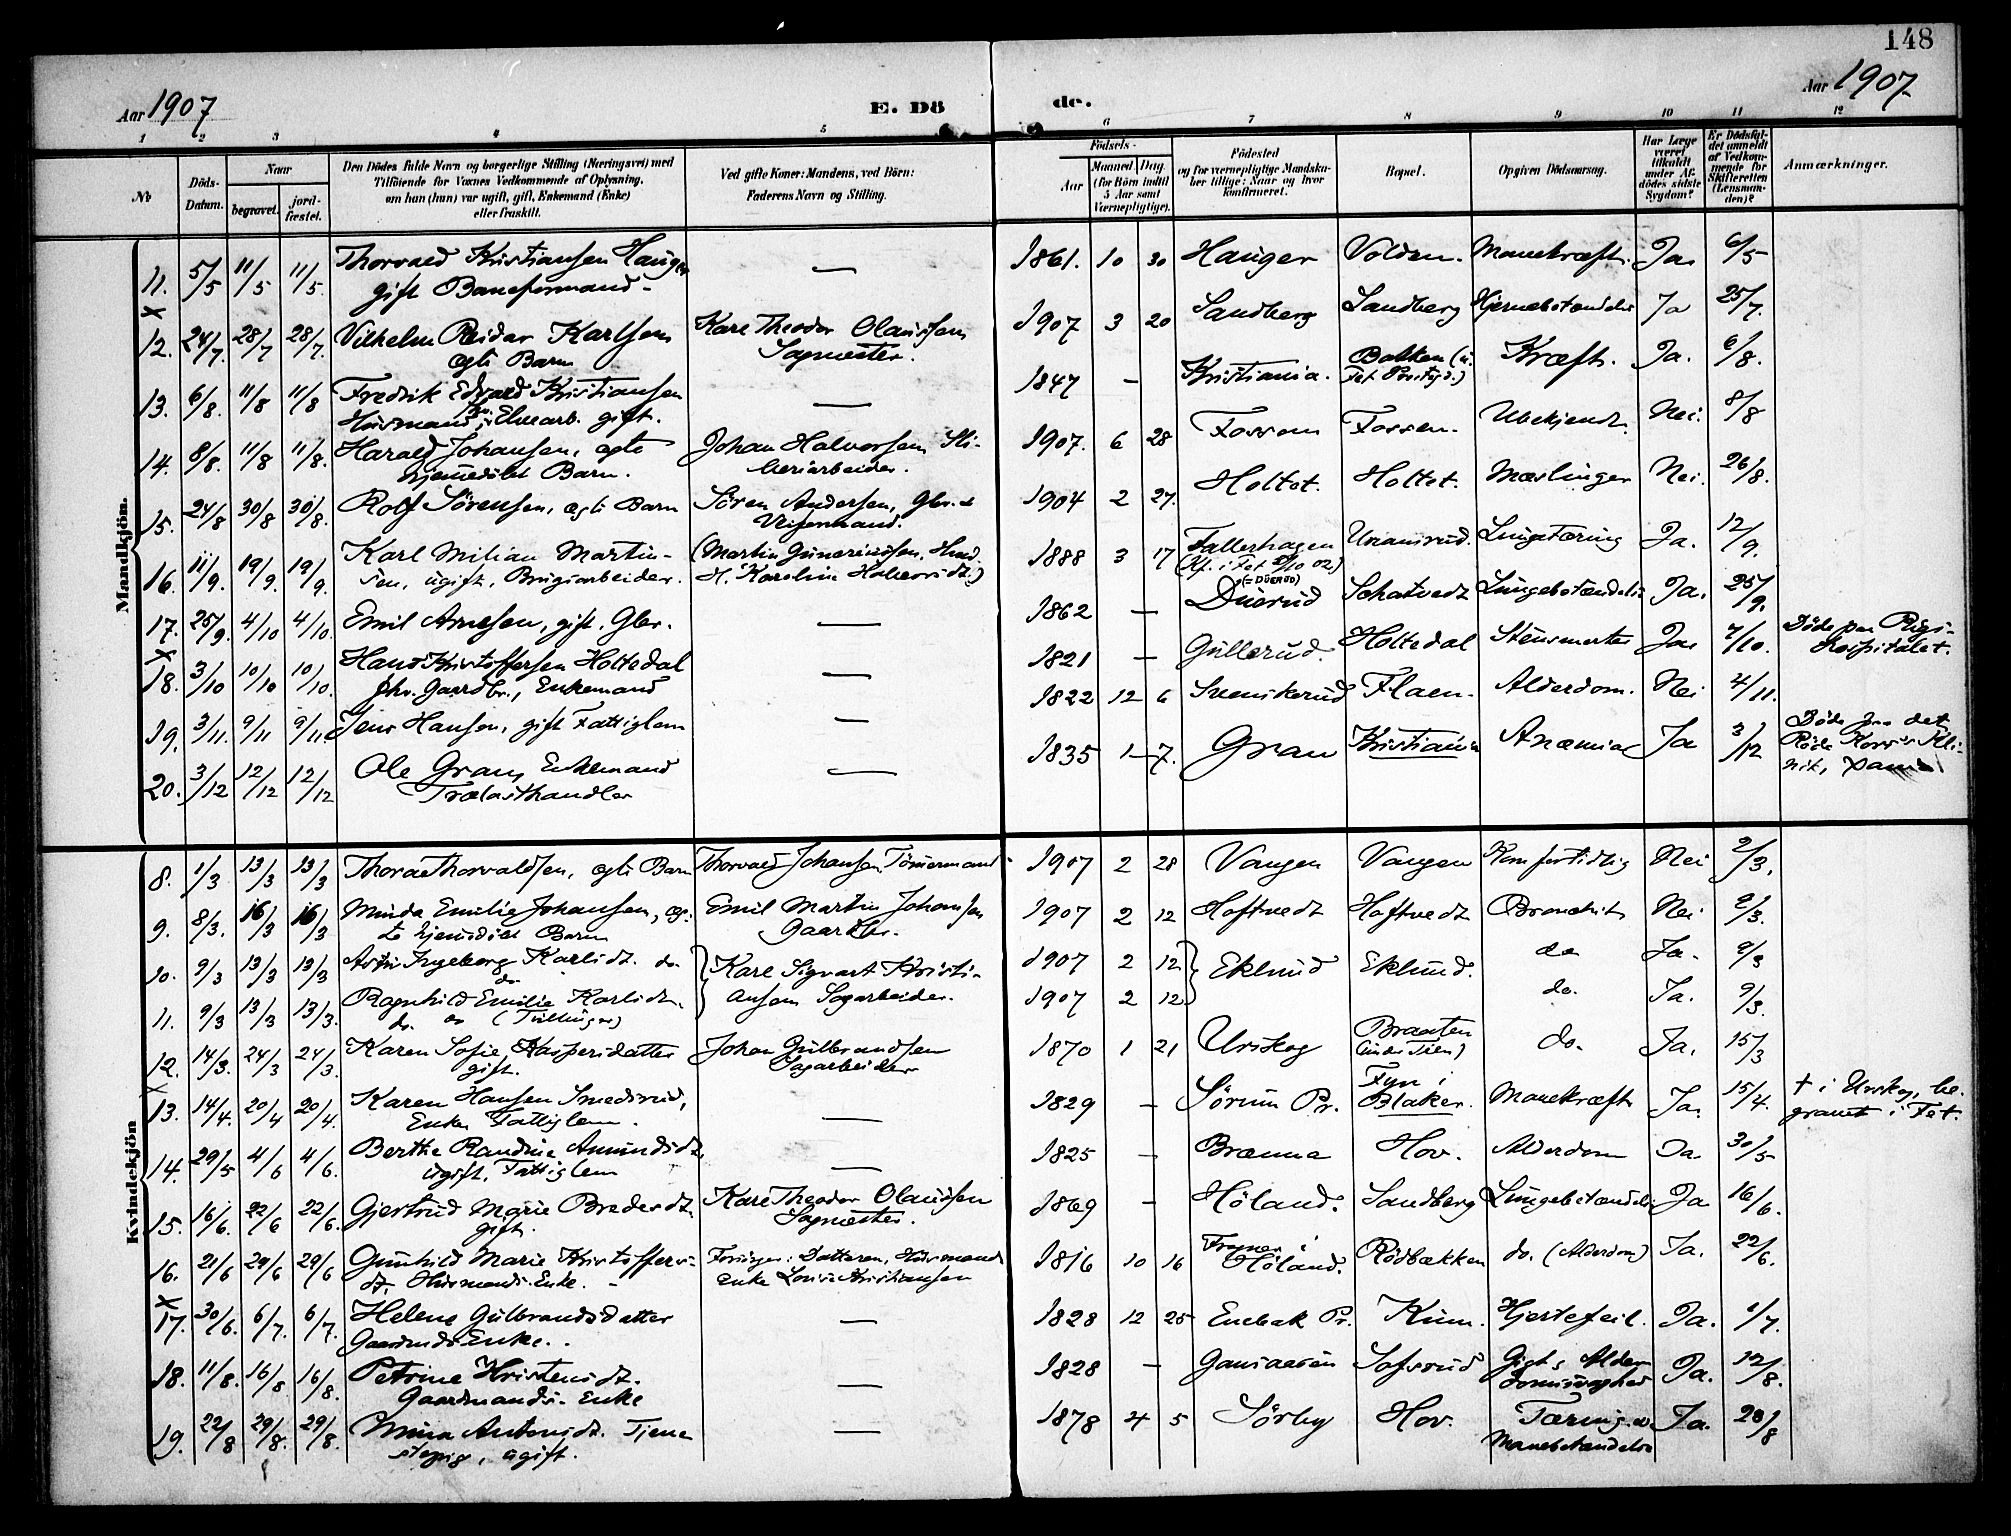 148
Aar 1907
E. Dö
de.
Aar 1907
1 2 3 4 5 6 7 8 9 10 11 12
№
Döds-
Datum.
Naar
begravet.
jord-
fæstet.
Den Dödes fulde Navn og borgerlige Stilling (Næringsvei) med
Tilföiende for Voxnes Vedkommende af Oplysning,
om han (hun) var ugift, gift, Enkemand (Enke)
eller fraskilt.
Ved gifte Koner: Mandens, ved Börn:
Faderens Navn og Stilling.
Födsels-
Aar
Maaned Dag.
(for Börn indtil
5 Aar samt
Værnepligtige).
Födested
og for værnepligtige Mandska-
ber tillige: Naar og hvor
konfirmeret.
Bopæl.
Opgiven Dödsaarsag.
Har Læge
været
tilkaldt
under Af-
dödes sidste
Sygdom?
Er Dödsfal-
det anmeldt
af Vedkom-
mende for
Skifteretten
(Lensman-
den)?
Anmærkninger.
Mandkjön.
11. 5/5 11/5 11/5 Thorvald Kristiansen Hauger
gift Baneformand — 1861. 10 30 Hauger Volden. Mavekræft. Ja 6/5
×
12. 24/7. 28/7 28/7. Vilhelm Reidar Karlsen
ægte Barn
Karl Theodor Olaussen
Sagmester. 1907 3 20 Sandberg Sandberg Hjernebetændelse Ja 25/7.
13. 6/8. 11/8 11/8 Fredrik Edvard Kristiansen
Husmand, Elvearb. gift. — 1847 — Kristiania. Bakken (i
Fet Prstgd.) Kræft. Ja. 6/8.
14. 8/8. 11/8 11/8. Harald Johansen, ægte
hjemedöbt Barn.
Johan Halvorsen Sli-
beriarbeider. 1907. 6 28 Fossum Fossen. Ubekjendt. Nei. 8/8
15. 24/8 30/8 30/8. Rolf Sörensen, ægte Barn
Sören Andersen, Gbr. &
Veiformand. 1904 2 27. Holtet. Holtet. Mæslinger Nei. 26/8.
16. 11/9. 19/9. 19/9. Karl Milian Martin-
sen, ugift, Brugsarbeider.
(Martin Guneriussen,
H. Karolin Halvorsdt.) 1888 3 17 Fallerhagen
(Kf. i Fet 5/10 02) Lungetæring Ja. 12/9.
17. 25/9. 4/10 4/10. Emil Arnesen, gift, Gbr. — 1862 —
(= DUERUD)
Duerud Lungebetændelse Ja. 25/9.
×
18. 3/10 10/10 10/10. Hans Kristoffersen Holtedal
fhv. Gaardbr., Enkemand — 1821 — Gullerud. Holtedal Ja 7/10. Döde paa Rigs-
hospitalet.
19. 3/11. 9/11 9/11. Jens Hansen, gift Fattiglem — 1822 12 6 Svenskerud Flaen. Alderdom. Nei 4/11.
20. 3/12 12/12 12/12 Ole Gran, Enkemand
Trælasthandler — 1835 1 7. Gran Kristiania Anæmia Ja 3/12 Döde paa det
Röde Kors's Kli-
nik,
Kvindekjön
8. 1/3 13/3 13/3 Thora Thorvaldsen, ægte Barn Thorvald Johansen Tömmermand 1907 2 28 Vangen Vangen Kom fortidlig Nei 2/3.
9. 8/3. 16/3 16/3 Minda Emilie Johansen, æg-
te hjemedöbt Barn
Emil Martin Johansen
Gaardbr. 1907 2 12 Hoftvedt Hoftvedt Bronchit Nei 9/3.
10. 9/3 13/3 13/3 Astri Ingeborg Karlsdt. do.
do
Karl Sigvart Kristi-
ansen Sagarbeider. 1907 2 12 Eklund Eklund. do Ja. 9/3
11. 9/3 13/3 13/3. Ragnhild Emilie Karlsdt.
do. do (Tvillinger) 1907 2 12 do. Ja. 9/3.
12. 14/3. 24/3 24/3. Karen Sofie Kaspersdatter
gift.
Johan Gulbrandsen
Sagarbeider 1870 1 21 Urskog Braaten
(under Tien) do. Ja. 15/3
×
13. 14/4. 20/4 20/4. Karen Hansen Smedsrud,
Enke Fattiglem. — 1829 — Sörum Pr. Fyn i
Blaker. Mavekræft Ja. 15/4. † i Urskog, be-
gravet i Fet.
14. 29/5 4/6 4/6. Berthe Randine Amundsdt.
ugift, Fattiglem — 1825 — Brænna Hov. Alderdom Ja. 30/5
15. 16/6. 22/6 22/6. Gjertrud Marie Bredesdt.
gift.
Karl Theodor Olaussen
Sagmester. 1869 — Höland. Sandberg Lungebetændelse Ja 16/6.
16. 21/6 29/6 29/6 Gunhild Marie Kristoffers-
dt. Husmands Enke.
Forsörger: Datteren, Husmands
enke Lovise Kristiansen 1816 10 16 i
Höland. Rödbækken do. (Alderdom) Ja. 22/6.
×
17. 30/6. 6/7. 6/7. Helene Gulbrandsdatter
Gaardmds. Enke. — 1828 12 25 Enebak Pr. Kum. Hjertefeil. Ja. 1/7.
18. 11/8. 16/8 16/8. Petrine Kristensdt.
Gaardmands. Enke — 1828 — Gansaasen Sofsrud Gigt & Alder-
domssvaghed Ja. 12/8.
19. 22/8 29/8. 29/8. Mina Antonsdt. Tjene-
stepige, ugift. — 1878 4 5 Sörby Hov. Tæring &
Mavebetændelse Ja. 28/8